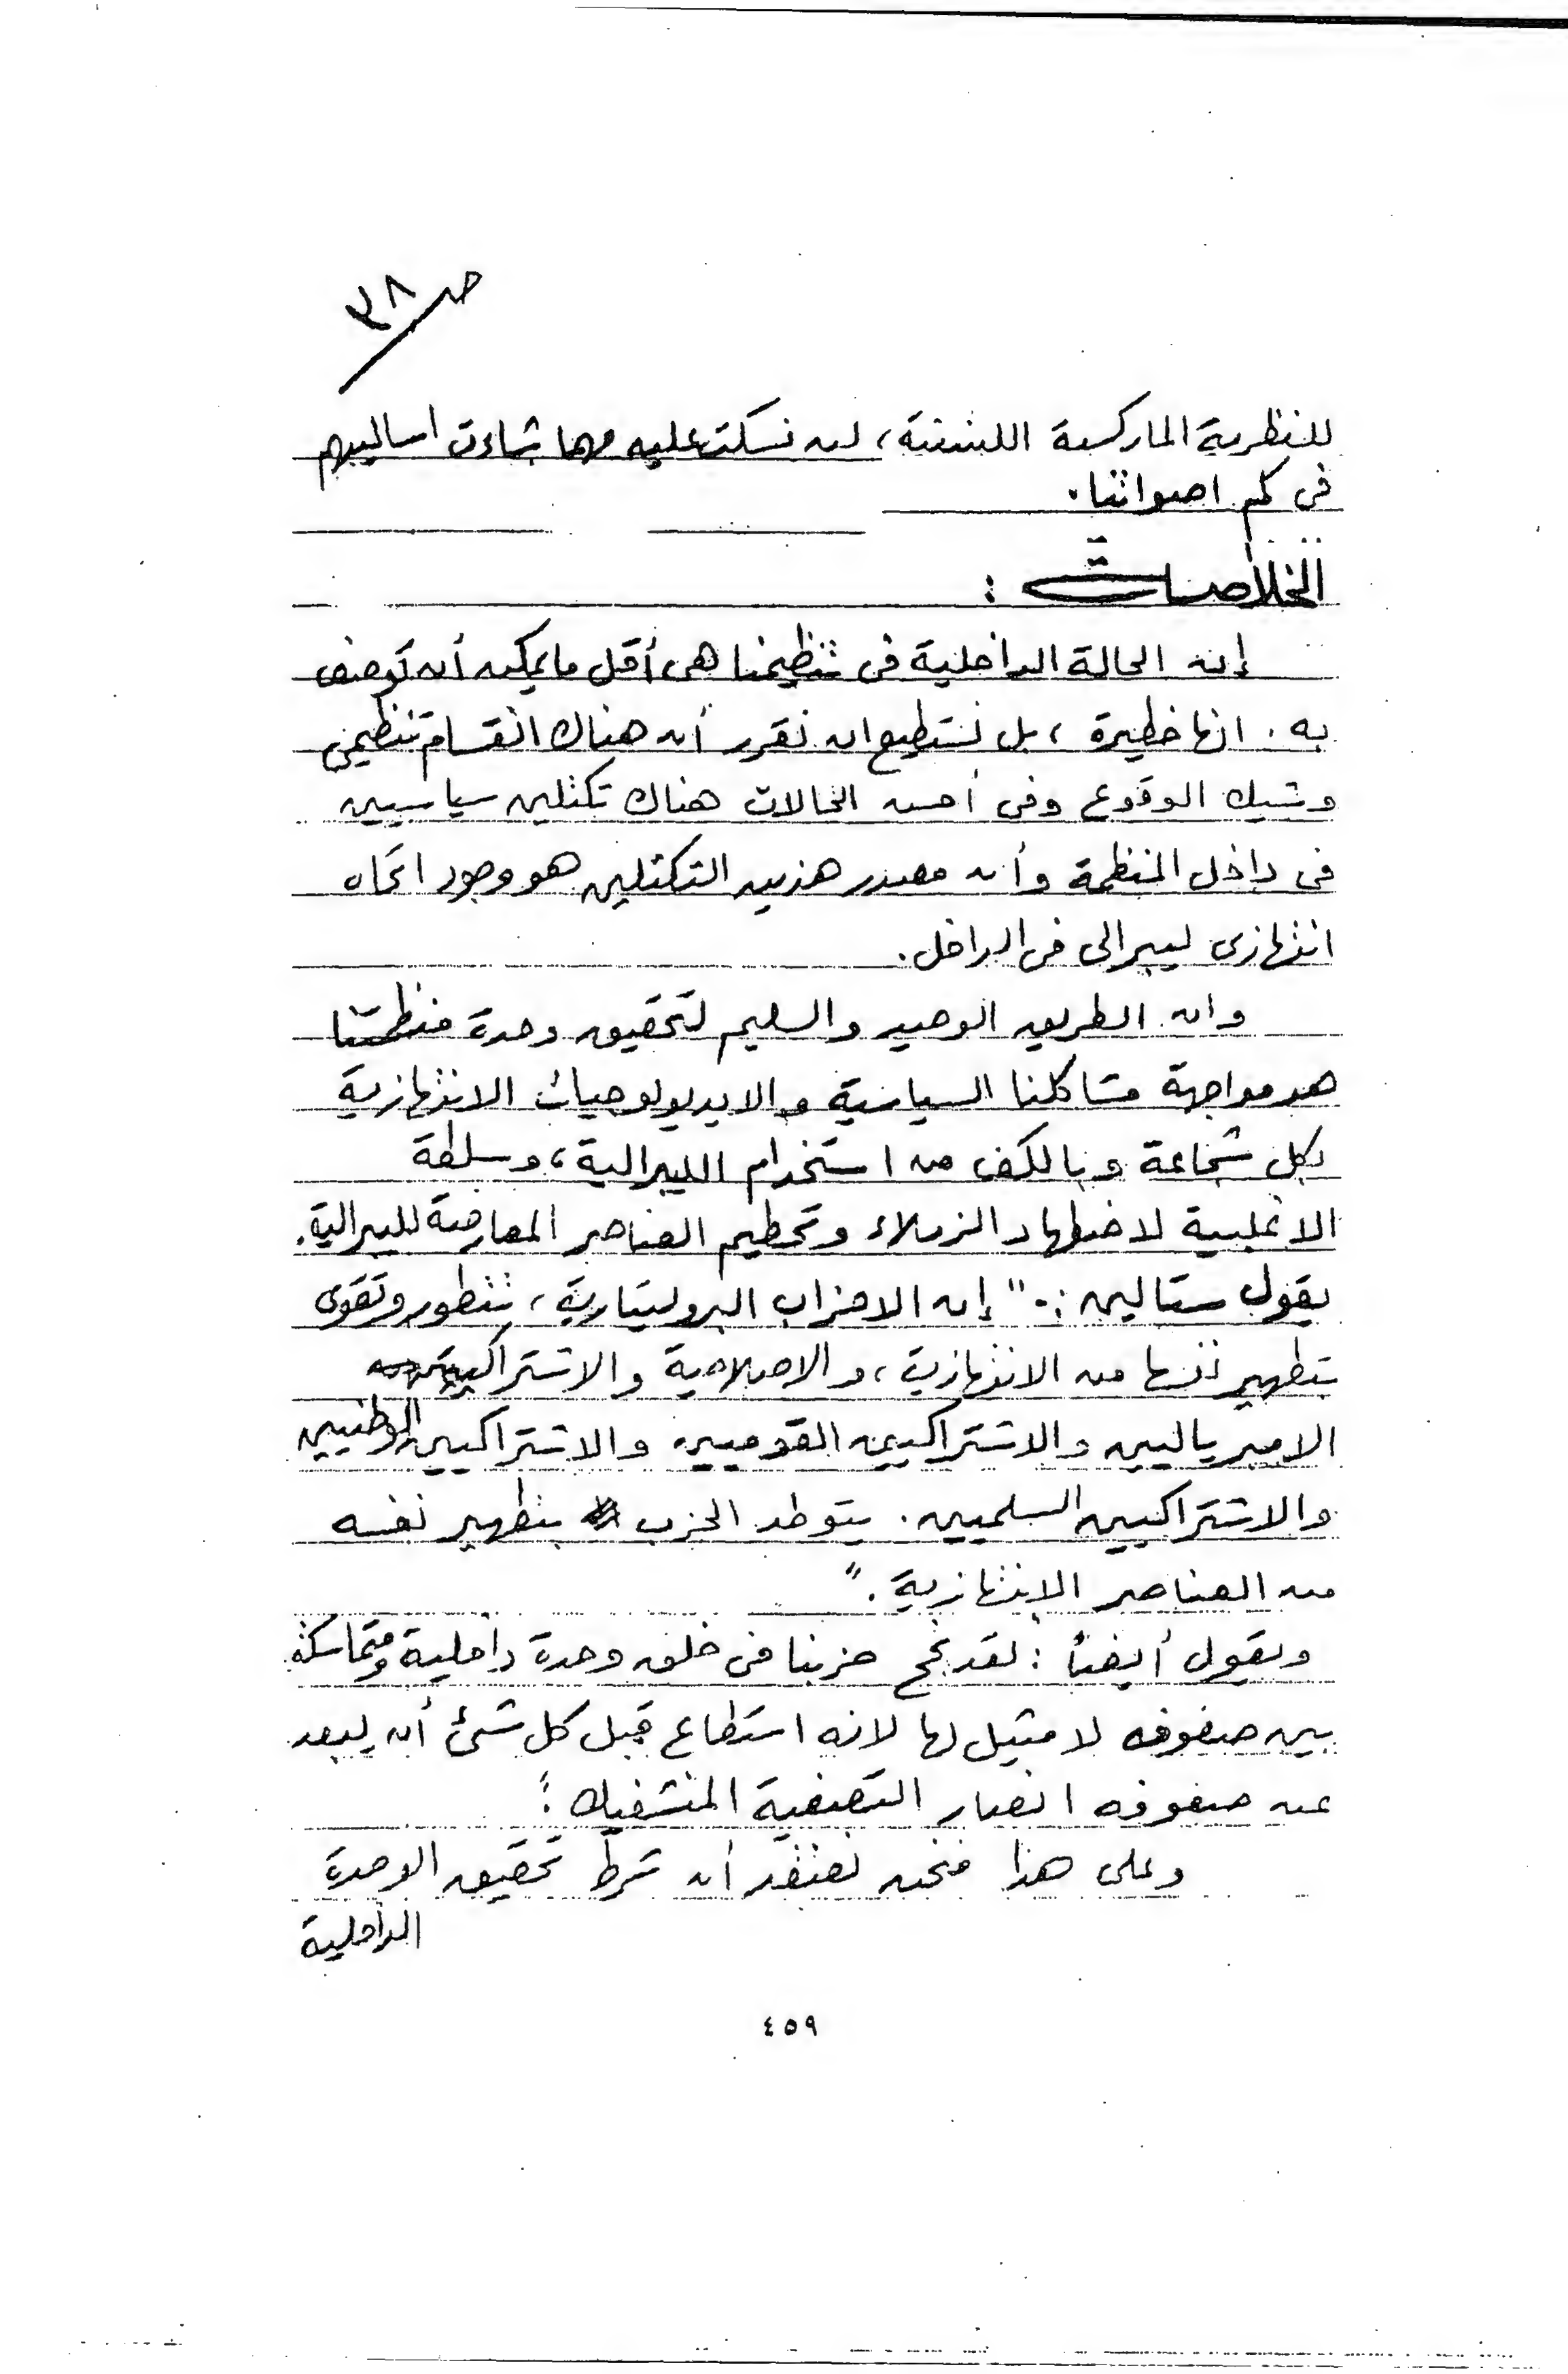 ص ٣٨
للنظرية الماركسية اللينينية، لن نسكت عليه مهما شاءت اساليبهم
فى كم اصواتنا.
الخلاصات :
إن الحالة الداخلية فى تنظيمنا هى أقل ما يمكن أن توصف
به. انها خطيرة، بل نستطيع ان نقرر أن هناك انقسام تنظيمى
وشيك الوقوع وفى أحسن الحالات هناك تكتلين سياسيين
فى داخل المنظمة وأن مصدر هذين التكتلين هو وجود اتجاه
انتهازى ليبرالى فى الداخل.
وان الطريق الوحيد والسليم لتحقيق وحدة منظمتنا
هو مواجهة مشاكلنا السياسية والايديولوجيات الانتهازية
بكل شجاعة وبالكف من استخدام الليبرالية، وسلطة
الاغلبية لاضطهاد الزملاء وتحطيم العناصر المعارضة لليبرالية.
يقول ستالين :. " إن الاحزاب البروليتارية، تتطور وتقوى
بتطهير نفسها من الانتهازية، والاصلاحية والاشتراكيين
الامبرياليين والاشتراكيين القوميين والاشتراكيين الوطنيين
والاشتراكيين السلميين. يتوطد الحزب بتطهير نفسه
من العناصر الانتهازية."
ويقول أيضاً : لقد نجح حزبنا فى خلق وحدة داخلية ومتماسكة
بين صفوفه لا مثيل لها لانه استطاع قبل كل شئ أن يبعد
عن صفوفه انصار التصفية المنشفيك :"
وعلى هذا فنحن نعتقد أن شرط تحقيق الوحدة
الداخلية
٤٥٩